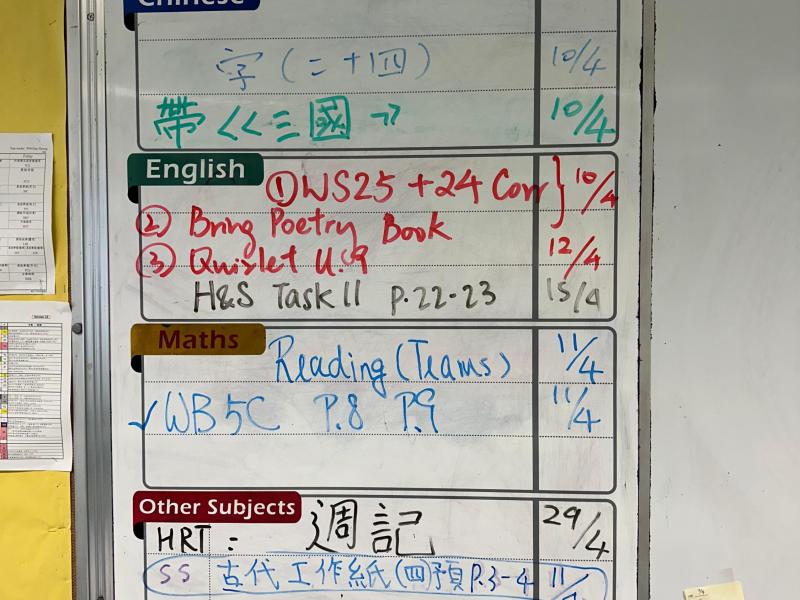 Chinese
字 (二十四) 10/4
帶 << 三國 >> 10/4
English
① WS25 + 24 Corr } 10/4
② Bring Poetry Book
③ Quizlet U.9 12/4
H&S Task 11 P.22-23 15/4
Maths
Reading (Teams) 11/4
✓ WB 5C P.8 P.9 11/4
Other Subjects
HRT: 週記 29/4
SS 古代工作紙(四)預 P.3-4 11/